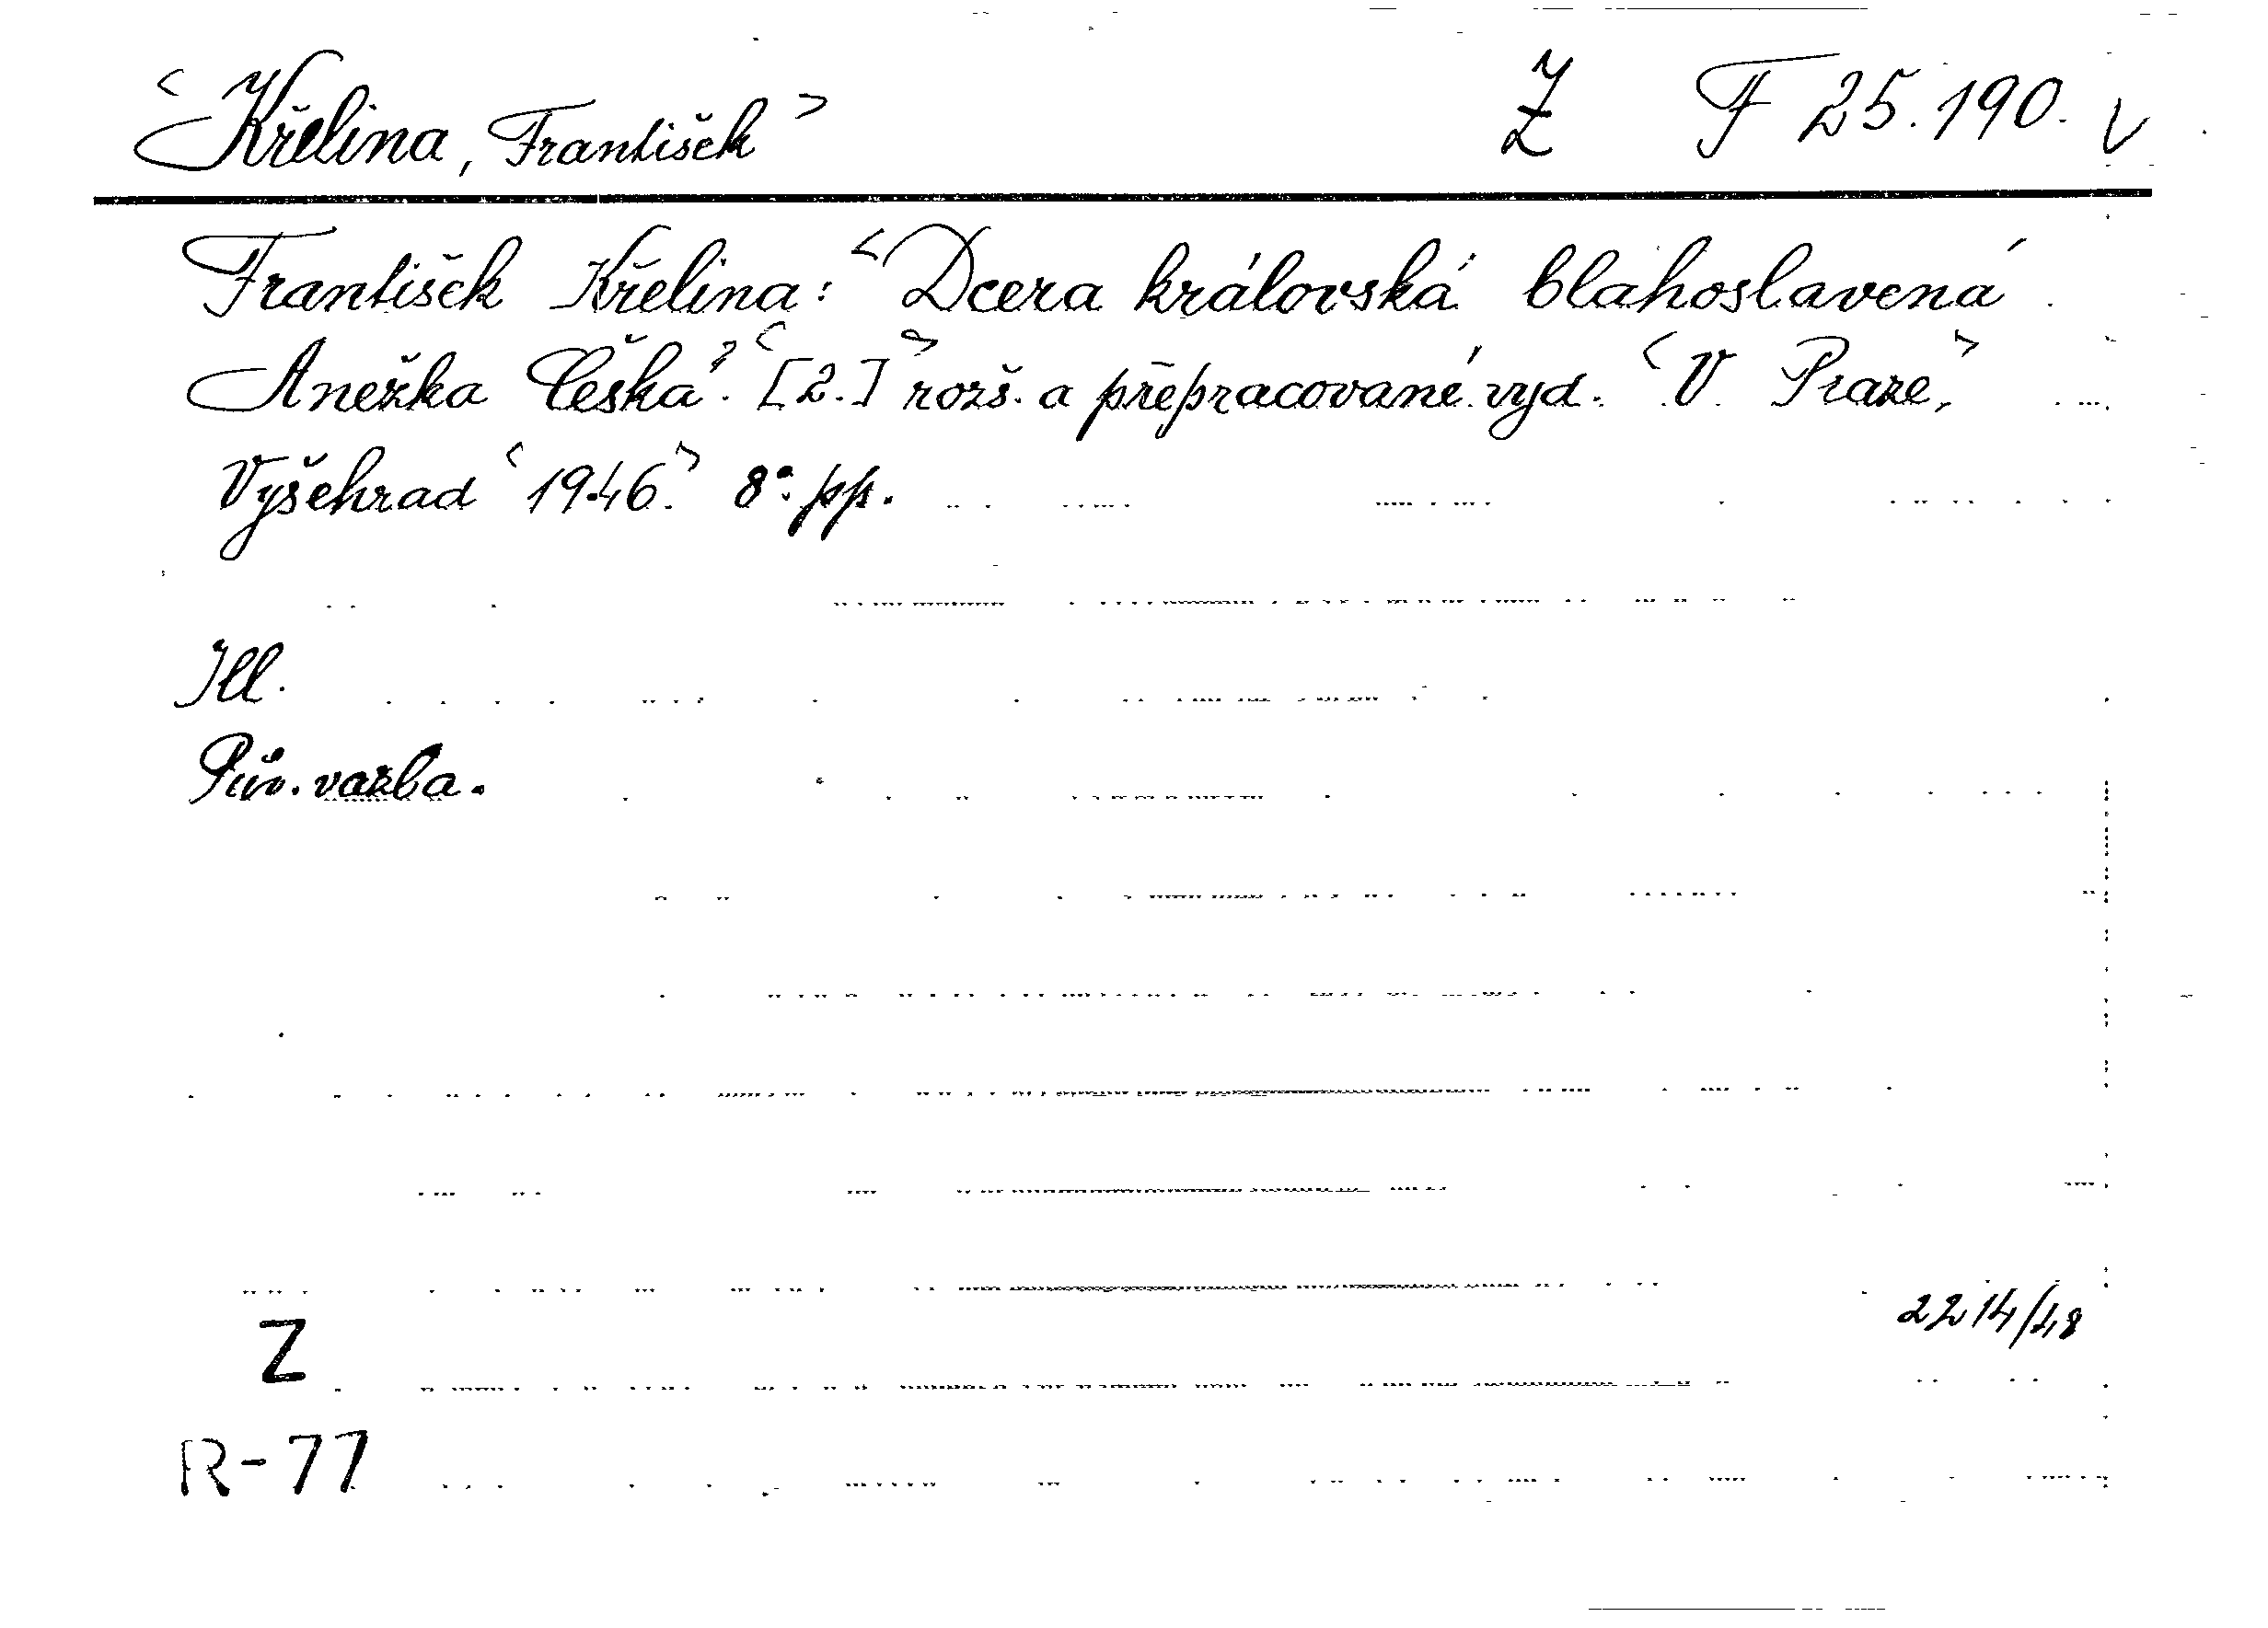 <Křelina, František> Z F 25.190. V
František Křelina: <Dcera královská blahoslavená
Anežka Česká.> <[2.]> rozš. a přepracované vyd. <V Praze,>
Vyšehrad <1946.> 8°. pp.
Ill.
Pův. vazba.
2214/48
Z
R-77